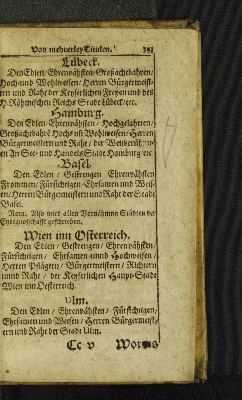 Von mehrerley Titulen. 393
Lübeck.
Den Edlen / Ehrenvähsten / Großachtbahren /
Hoch- und Wohlweisen / Herren Bürgermeist-
ern und Raht der Keyserlichen Freyen und des
H. Römischen Reichs Stadt Lübeck / etc.
Hamburg.
Den Edlen / Ehrenvähsten / Hochgelahrten /
Großachtbahrē Hoch- und Wohlweisen / Herren
Bürgermeistern und Rahr / der Weitberühm-
en An See- und Handels Stadt Hamburg / etc.
Basel.
Den Edlen / Gestrengen Ehrenvähsten
Frommen / Fürsichtigen / Ehrsamen und Weis-
en / Herren Bürgermeistern und Raht der Stadt
Basel.
Nota. Also wird allen Vornähmen Städten der
Endgnoßschafft geschrieben.
Wien inn Osterreich.
Den Edlen / Gestrengen / Ehrenvähsten /
Fürsichtigen / Ehrsamen unnd Hochweisen /
Herren Pflägern / Bürgermeistern / Richtern
unnd Raht / der Keyserlichen Haupt-Stadt
Wien inn Oesterreich.
Ulm.
Den Edlen / Ehrenvähsten / Fürsichtigen /
Ehrsamen und Weisen / Herren Bürgermeist-
ern und Raht der Stadt Ulm.
Cc v Worms